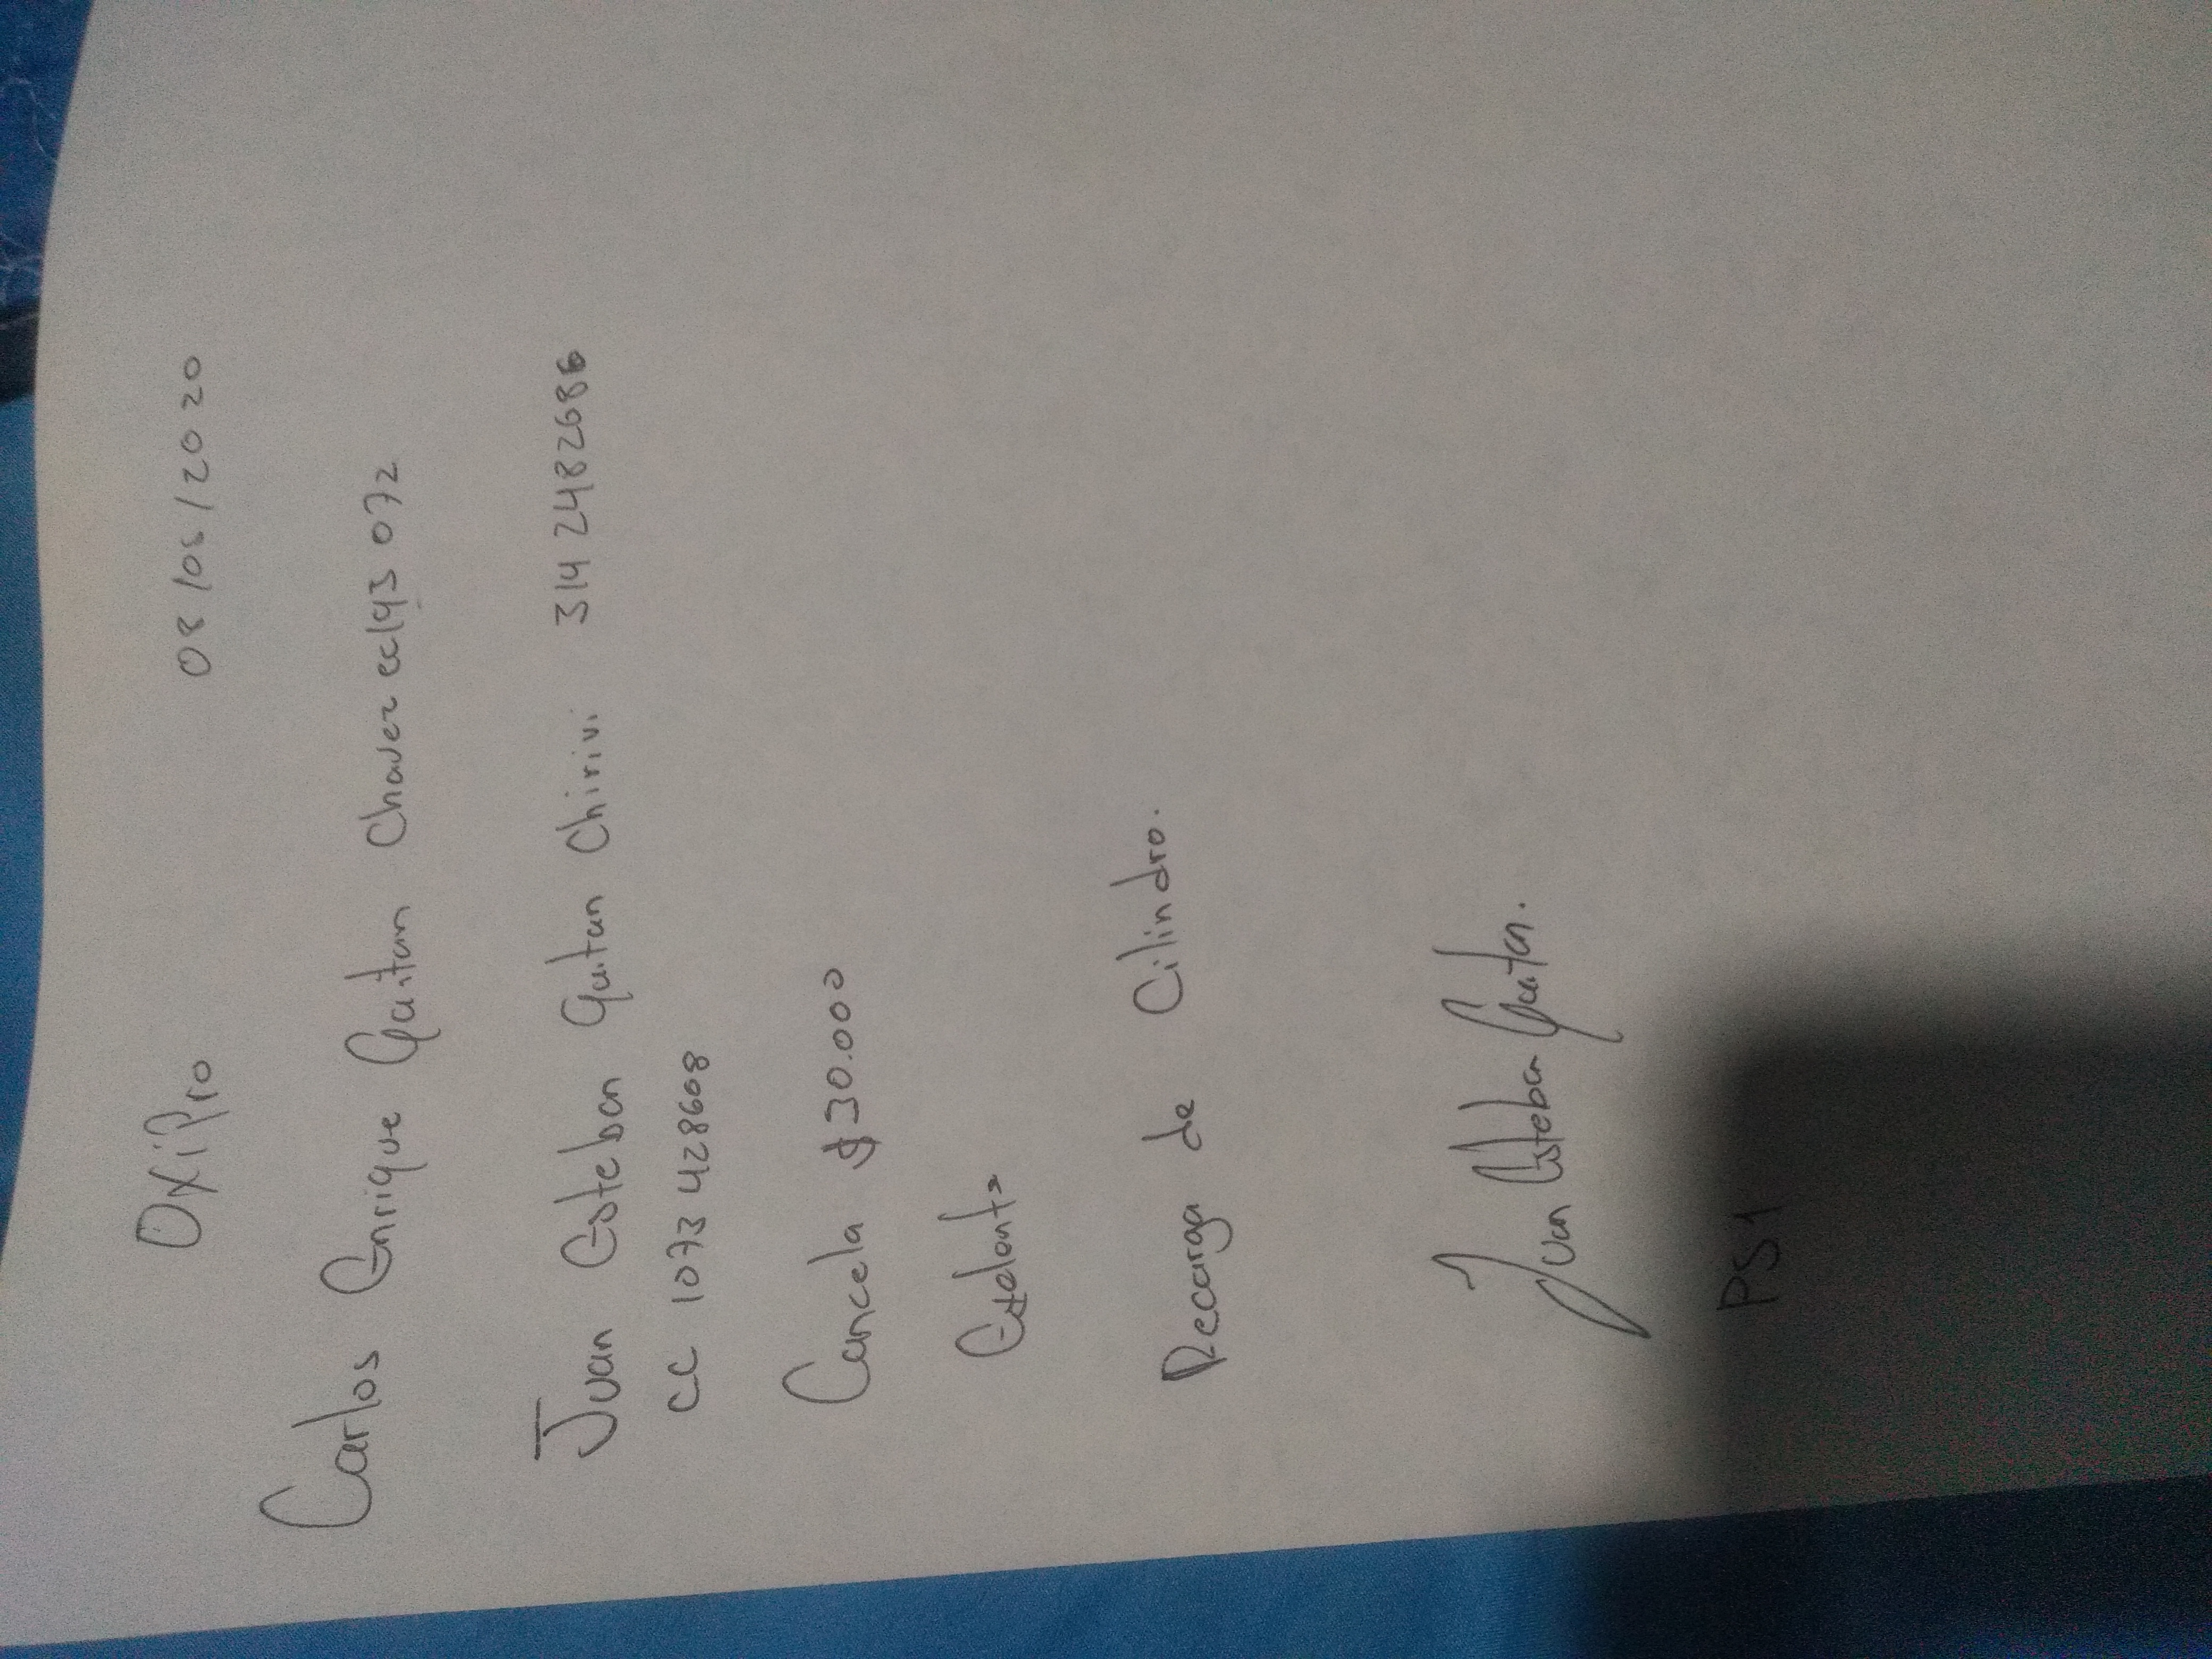 OxiPro 08/05/2020
Carlos Enrique Gaitan Chavez cc 193 072
Juan Esteban Gaitan Chirivi 314 2482686
CC 1073428608
Cancela $30.000
Recarga de Cilindro.
Juan Esteban Gaitan.
PS1